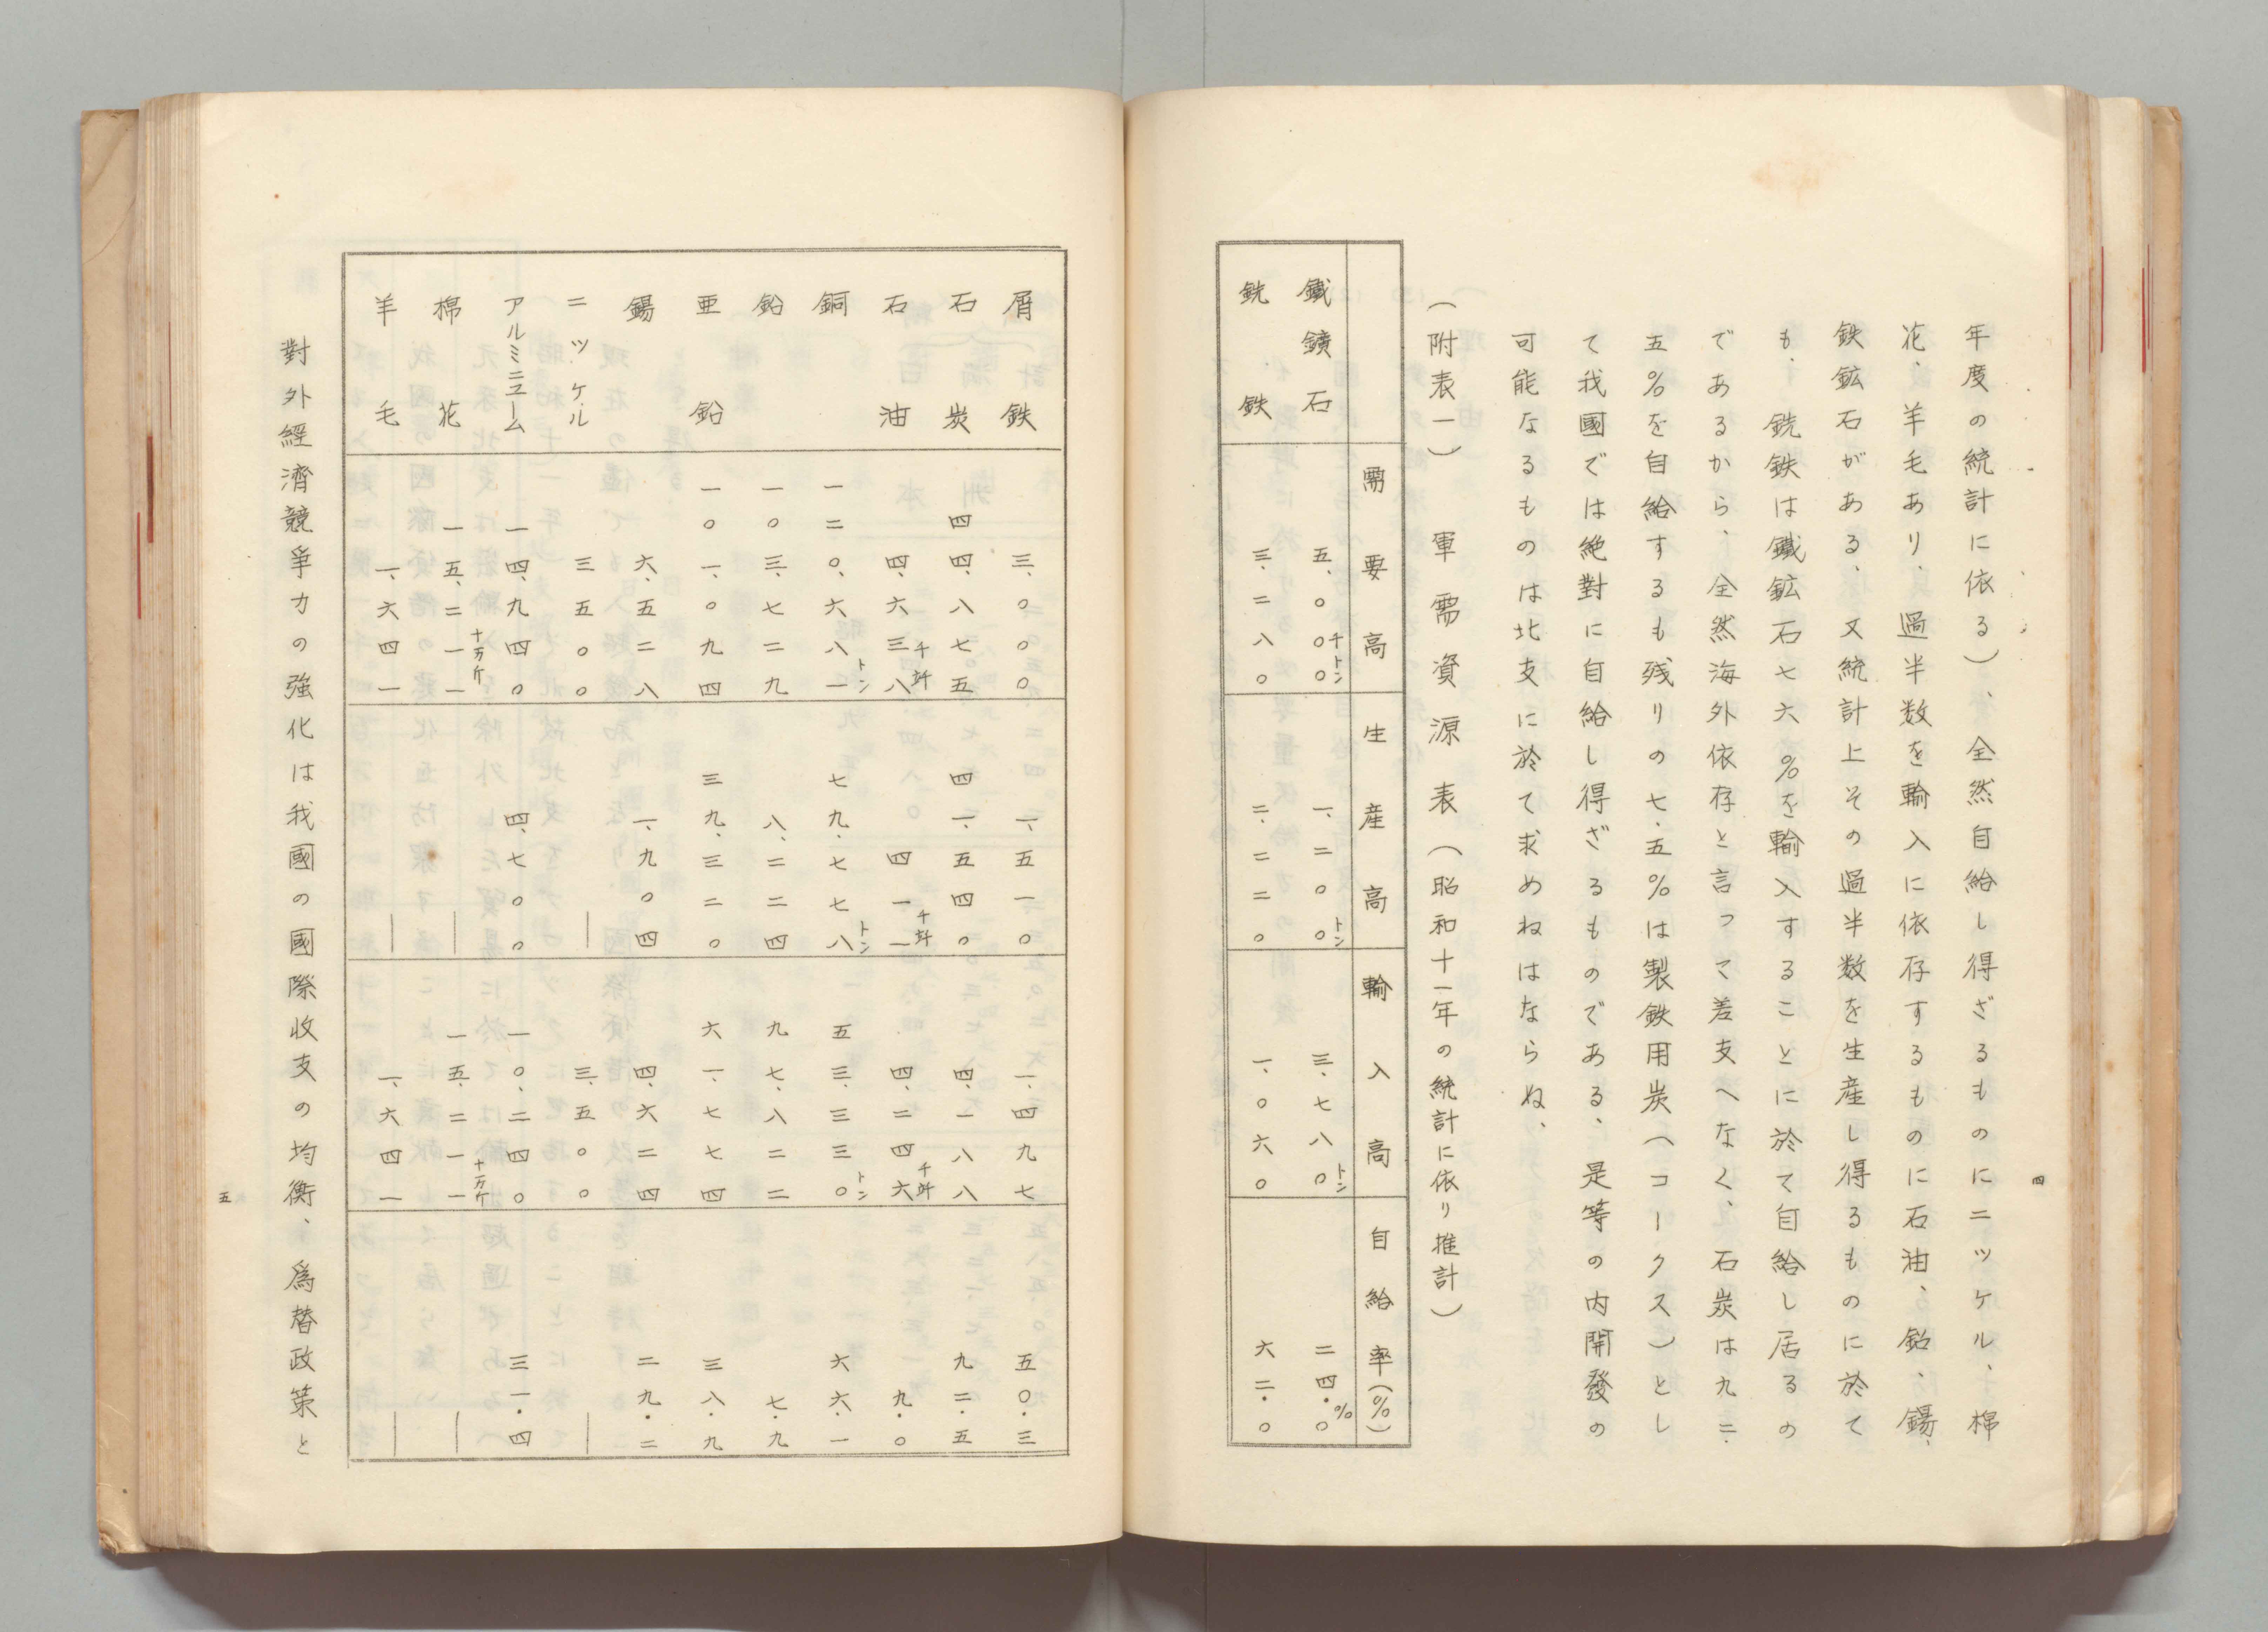 四
年度の統計に依る)、全然自給し得ざるものにニツケル、棉
花、羊毛あり、過半数を輸入に依存するものに石油、鉛、錫、
鉄鉱石がある、又統計上その過半数を生産し得るものに於て
も、銑鉄は鐵鉱石七六%を輸入することに於て自給し居るの
であるから、全然海外依存と言って差支へなく、石炭は九二・
五%を自給するも残りの七.五%は製鉄用炭(コークス)とし
て我國では絶對に自給し得ざるものである、是等の内開發の
可能なるものは北支に於て求めねはならぬ、
(附表一) 軍需資源表(昭和十一年の統計に依り推計)
需要高 生産高 輸入高 自給率(%)
鐵鑛石 五、〇〇〇千トン 一、二〇〇トン 三、七八〇トン 二四.〇%
銑鉄 三、二八〇 二、二二〇 一、〇六〇 六二.〇
屑鉄 三、〇〇〇 一、五一〇 一、四九七 五〇.三
石炭 四四、八七五 四一、五四〇 四、一八八 九二.五
石油 四、六三八千竏 四一一千竏 四、二四六千竏 九.〇
銅 一二〇、六八一トン 七九、七七八トン 五三、三三〇トン 六六.一
鉛 一〇三、七二九 八、二二四 九七、八二二 七.九
亜鉛 一〇一、〇九四 三九、三二〇 六一、七七四 三八.九
錫 六、五二八 一、九〇四 四、六二四 二九.二
ニツケル 三五〇〇 — 三、五〇〇 —
アルミニユーム 一四、九四〇 四、七〇〇 一〇、二四〇 三一.四
棉花 一五、二一一十万斤 — 一五、二一一十万斤 —
羊毛 一、六四一 — 一、六四一 —
對外經濟競爭力の強化は我國の國際收支の均衡、爲替政策と
五